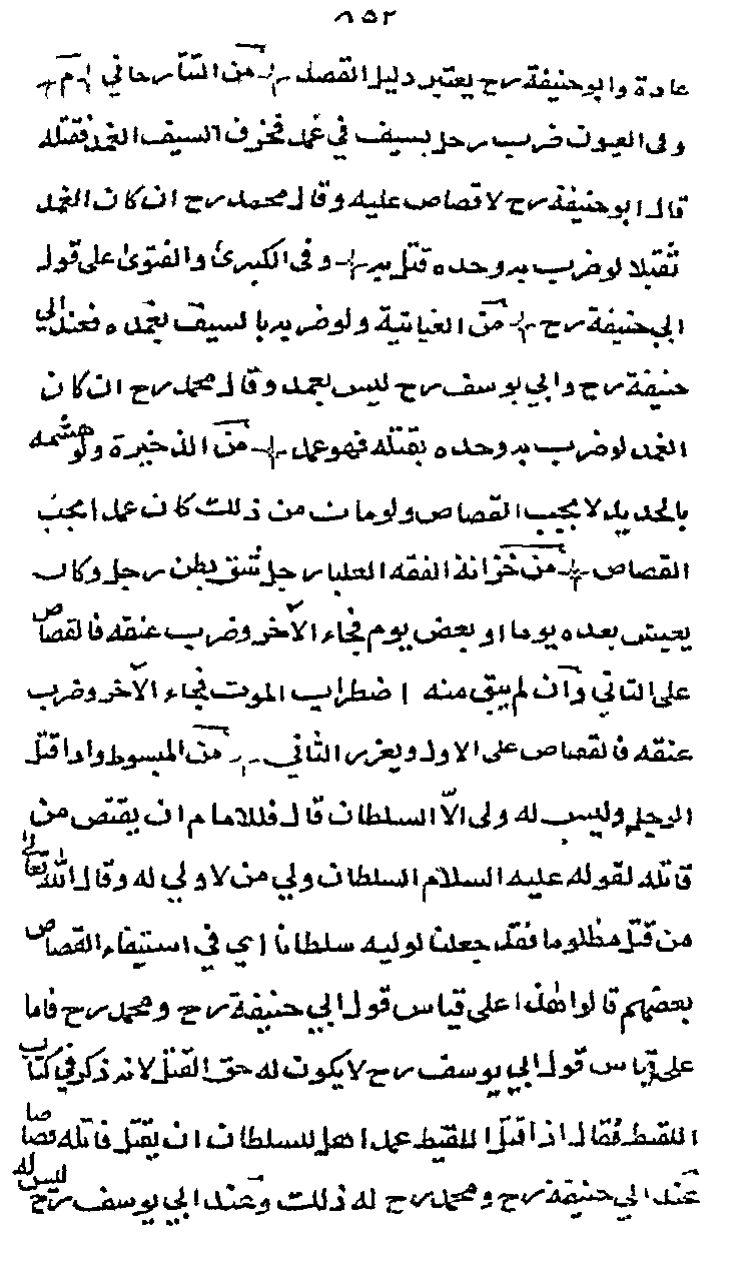 ٨٥٢
عادة وابو حنيفة رح يعتبر دليل القصد من التتارخاني م
وفى العيون ضرب رجل بسيف في غمد فخرق السيف الغمد فقتله
قال ابو حنيفة رح لا قصاص عليه وقال محمد رح ان كان الغمد
ثقيلا لو ضرب به وحده قتل به وفى الكبرى والفتوى على قول
ابي حنيفة رح من الغياثية ولو ضربه بالسيف بغمده فعند ابي
حنيفة رح وابي يوسف رح ليس بعمد وقال محمد رح ان كان
الغمد لو ضرب به وحده يقتله فهو عمد من الذخيرة ولو هشمه
بالحديد لا يجب القصاص ولو مات من ذلك كان عمدا يجب
القصاص من خزانة الفقه العليا رجل شق بطن رجل وكان
يعيش بعده يوما او بعض يوم فجاء الآخر وضرب عنقه فالقصاص
على الثاني وان لم يبق منه اضطراب الموت فجاء الآخر وضرب
عنقه فالقصاص على الاول ويعزر الثاني من المبسوط واذا قتل
الرجل وليس له ولى الا السلطان قال فللامام ان يقتص من
قاتله لقوله عليه السلام السلطان ولي من لا ولي له وقال الله تعالى
من قتل مظلوما فقد جعلنا لوليه سلطانا اي في استيفاء القصاص
بعضهم قالوا هذا على قياس قول ابي حنيفة رح ومحمد رح فاما
على قياس قول ابي يوسف رح لا يكون له حق القتل لانه ذكر في كتاب
اللقيط فقال اذا قتل اللقيط عمدا هل للسلطان ان يقتل قاتله قصاصا
عند ابي حنيفة رح ومحمد رح له ذلك وعند ابي يوسف رح ليس له